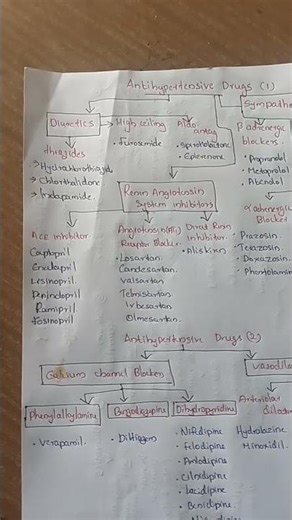 Antihypertensive Drugs (1)
Sympatho
Diuretics
High ceiling
• Furosemide
Aldo
antag
• Spironolactone
• Eplerenone
β adrenergic
blockers.
• Propranolol
• Metoprolol
• Atenolol
Thiazides
→ Hydrochlorothiazide
→ Chlorthalidone
→ Indapamide.
Renin Angiotensin
System inhibitors
α adrenergic
Blocker
• Prazosin.
• Terazosin
• Doxazosin.
• Phentolamin
ACE inhibitor
Captopril
Enalapril
Lisinopril
Perindopril
Ramipril
Fosinopril
Angiotensin (AT1)
Receptor Blocker
• Losartan.
Candesartan.
Valsartan
Telmisartan
Irbesartan
Olmesartan.
Direct Renin
Inhibitor
• Aliskiren
Antihypertensive Drugs (2)
Calcium channel Blocker
Vasodila
Phenylalkylamine
• Verapamil.
Benzodiazepine
• Diltiazem
Dihydropyridine
• Nifidipine
• Felodipine
• Amlodipine
• Cilnidipine
• Lacidipine
• Benidipine
Arteriolar
dilator
Hydralazine
Minoxidil.